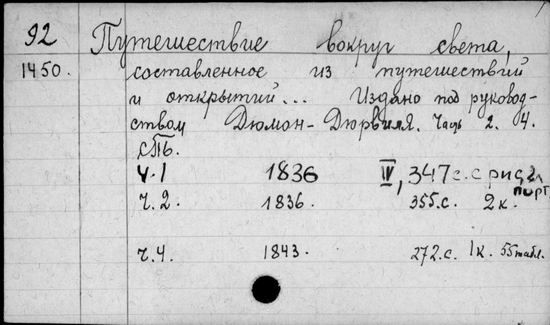 92 Путешествие вокруг света,
1450. составленное из путешествий
и открытий... Издано под руковод-
ством Дюмон-Дюрвиля. Часть 2. 4.
СПб.
Ч.1 1836 IV, 347с. с рис, 2
порт
Ч.2. 1836. 355.с. 2к.
Ч.4. 1843. 272.с. 1к. 55 табл.